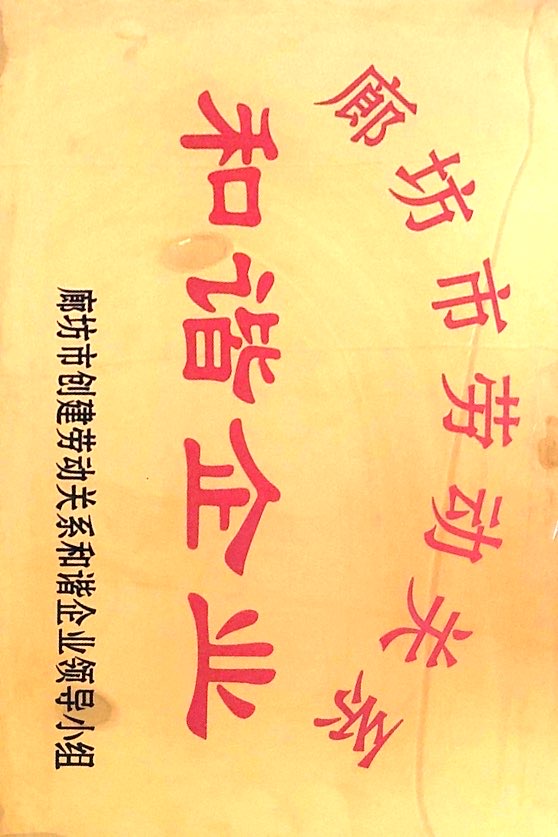 廊坊市劳动关系
和谐企业
廊坊市创建劳动关系和谐企业领导小组